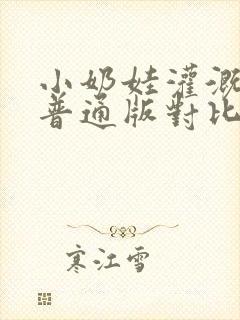 小奶娃灌溉
普通版對比
寒江雪